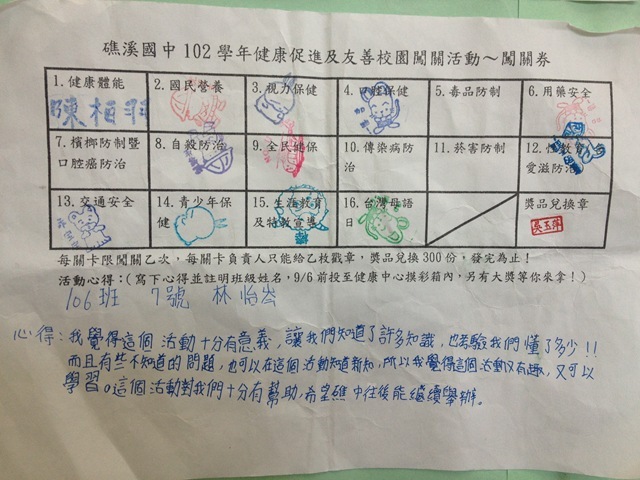 礁溪國中 102 學年健康促進及友善校園闖關活動～闖關券
1.健康體能 2.國民營養 3.視力保健 4.口腔保健 5.毒品防制 6.用藥安全
7.檳榔防制暨口腔癌防治 8.自殺防治 9.全民健保 10.傳染病防治 11.菸害防制 12.性教育、愛滋防治
13.交通安全 14.青少年保健 15.生涯教育及特教宣導 16.台灣母語日 獎品兌換章
吳玉萍
每關卡限闖關乙次，每關卡負責人只能給乙枚戳章，獎品兌換 300 份，發完為止！
活動心得：(寫下心得並註明班級姓名，9/6 前投至健康中心摸彩箱內，另有大獎等你來拿！)
106班 7號 林怡岑
心得：我覺得這個活動十分有意義，讓我們知道了許多知識，也考驗我們懂了多少!!
而且有些不知道的問題，也可以在這個活動知道新知，所以我覺得這個活動又有趣，又可以
學習。這個活動對我們十分有幫助，希望礁中往後能繼續舉辦。